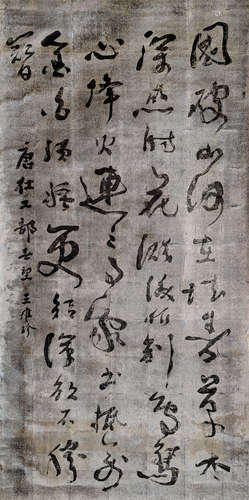 國破山河在城春草木
深感時花濺淚恨別鳥驚
心烽火連三月家書抵萬
金白頭搔更短渾欲不勝
簪
唐杜工部春望王